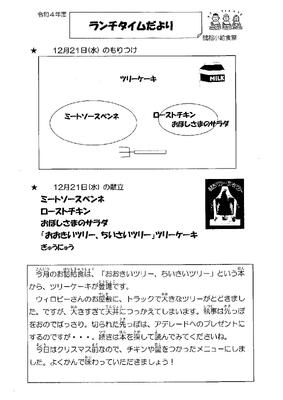 令和4年度
ランチタイムだより
★ 12月21日(水)のもりつけ
ツリーケーキ
MILK
ミートソースペンネ
ローストチキン
おほしさまのサラダ
★ 12月21日(水)の献立
ミートソースペンネ
ローストチキン
おほしさまのサラダ
「おおきいツリー、ちいさいツリー」ツリーケーキ
ぎゅうにゅう
今月のお話給食は、「おおきいツリー、ちいさいツリー」という本
から、ツリーケーキが登場です。
ウィロビーさんのお屋敷に、トラックで大きなツリーがとどきまし
た。ですが、大きすぎて天井につっかえてしまいます。執事は先っぽ
をおのでばっさり。切られた先っぽは、アデレードへのプレゼントに
するのですが・・・。続きは本を探して読んでみてくださいね。
今日はクリスマス前なので、チキンや星をつかったメニューにしま
した。よくかんで味わっていただきましょう！